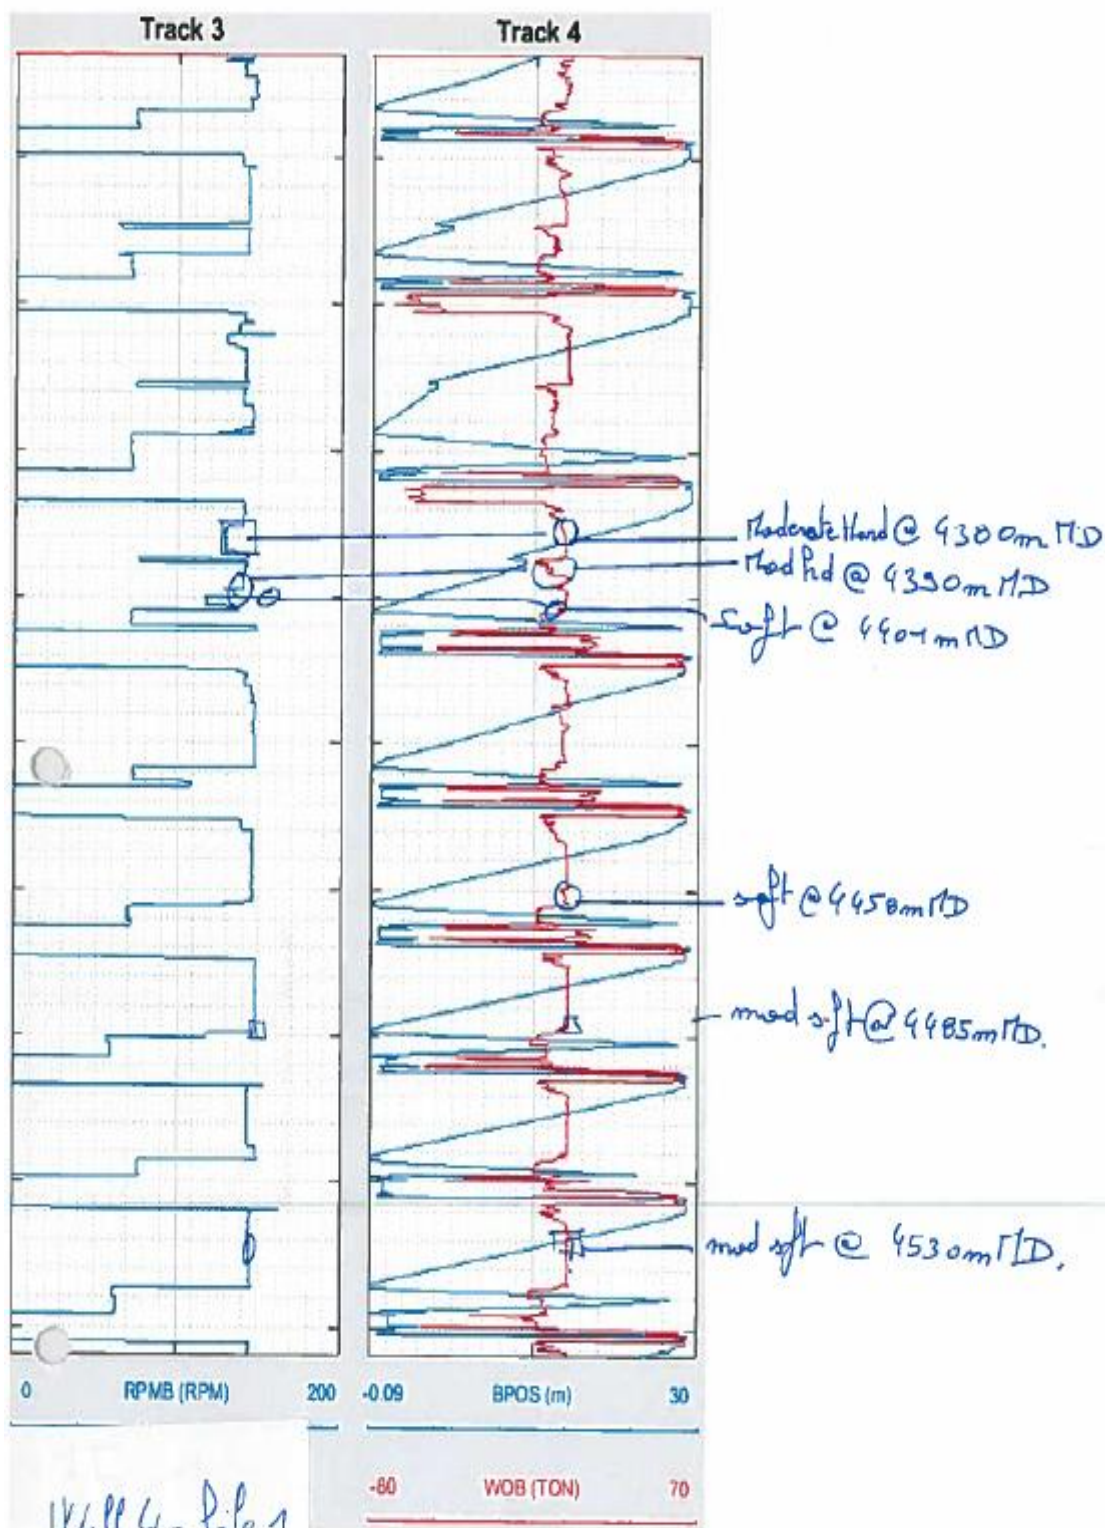 Track 3
Track 4
Moderate Hard @ 4380m MD
Mod hd @ 4390m MD
Soft @ 4401m MD
soft @ 4450m MD
mod sft @ 4485m MD.
mod sft @ 4530m MD.
0 RPMB (RPM) 200
-0.09 BPOS (m) 30
-60 WOB (TON) 70